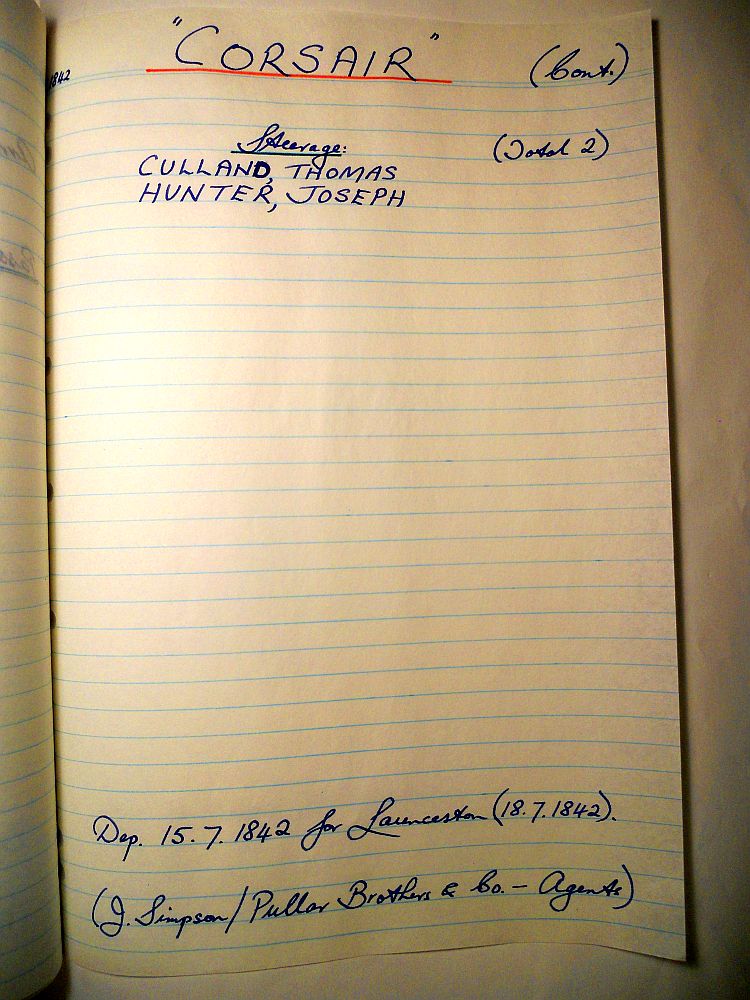 "CORSAIR" (Cont.)
1842
Steerage: (Total 2)
CULLAND, THOMAS
HUNTER, JOSEPH
Dep. 15.7.1842 for Launceston (18.7.1842).
(J. Simpson/Pullar Brothers & Co. - Agents)